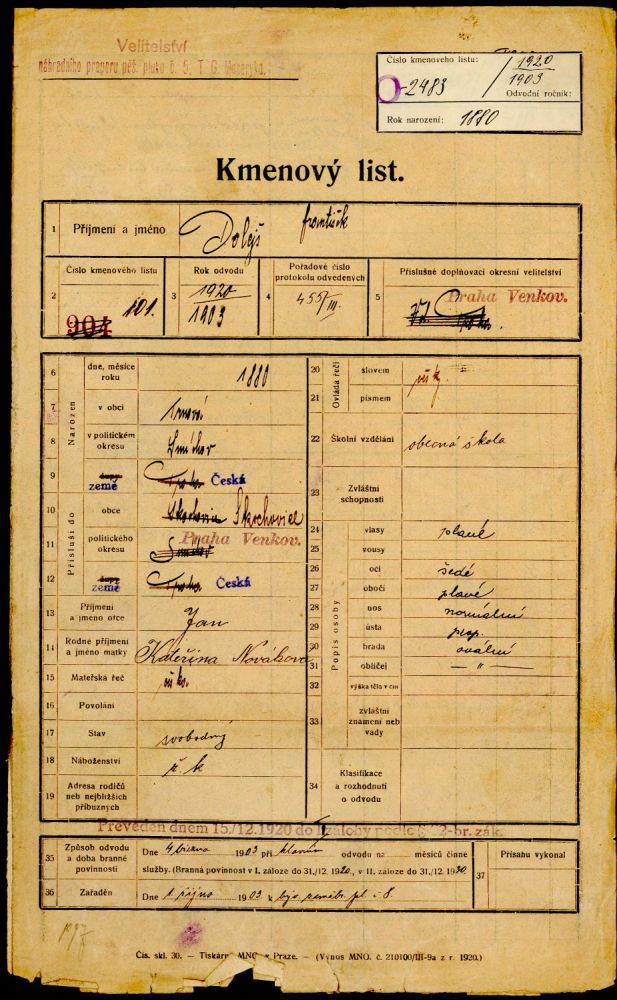 Velitelství
náhradního praporu pěš. pluku č. 5, T. G. Masaryka.
Číslo kmenového listu:
2483 / 1920
1903
Odvodní ročník:
Rok narození: 1880
Kmenový list.
1 Příjmení a jméno Dolejš František
2 Číslo kmenového listu 904 101.
3 Rok odvodu 1920 1903
4 Pořadové číslo protokolu odvedených 455/III.
5 Příslušné doplňovací okresní velitelství Praha Venkov.
Narozen
6 dne, měsíce roku 1880
7 v obci
8 v politickém okresu Smíchov
9 župy země Česká
Přísluší do
10 obce Skochovice
11 politického okresu Praha Venkov. Smíchov
12 župy země Česká
13 Příjmení a jméno otce Jan
14 Rodné příjmení a jméno matky Kateřina Nováková
15 Mateřská řeč
16 Povolání
17 Stav svobodný
18 Náboženství ř. k
19 Adresa rodičů neb nejbližších příbuzných
Ovládá řeči
20 slovem
21 písmem
22 Školní vzdělání obecná škola
23 Zvláštní schopnosti
Popis osoby
24 vlasy plavé
25 vousy
26 oči šedé
27 obočí plavé
28 nos normální
29 ústa prop.
30 brada oválni
31 obličej — „ —
32 výška těla v cm
33 zvláštní znamení neb vady
34 Klasifikace a rozhodnutí o odvodu
Převeden dnem 15./12.1920 do I. zálohy podle § 22-br. zák.
35 Způsob odvodu a doba branné povinnosti
Dne 4 března 1903 při hlavním odvodu na měsíců činné
služby. (Branná povinnost v I. záloze do 31./12. 1920, v II. záloze do 31./12. 1930.
36 Zařaděn Dne 1 října 1903 k býv. zeměbr. pl. č 8.
37 Přísahu vykonal
Čís. skl. 30. — Tiskárna MNO v Praze. — (Výnos MNO. č. 210100/III-9a z r. 1920.)